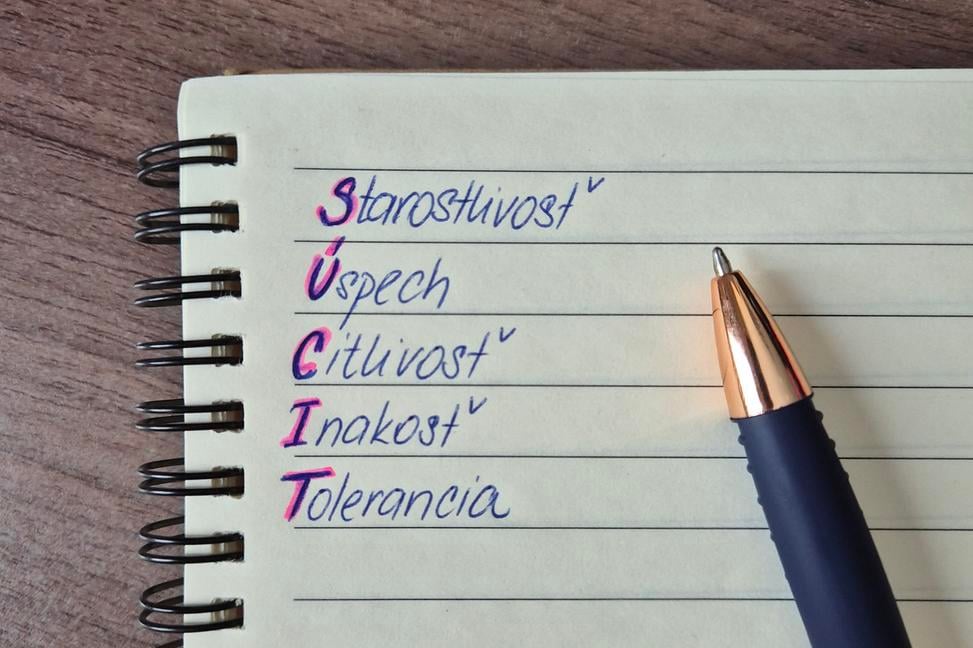 Starostlivosť
Úspech
Citlivosť
Inakosť
Tolerancia